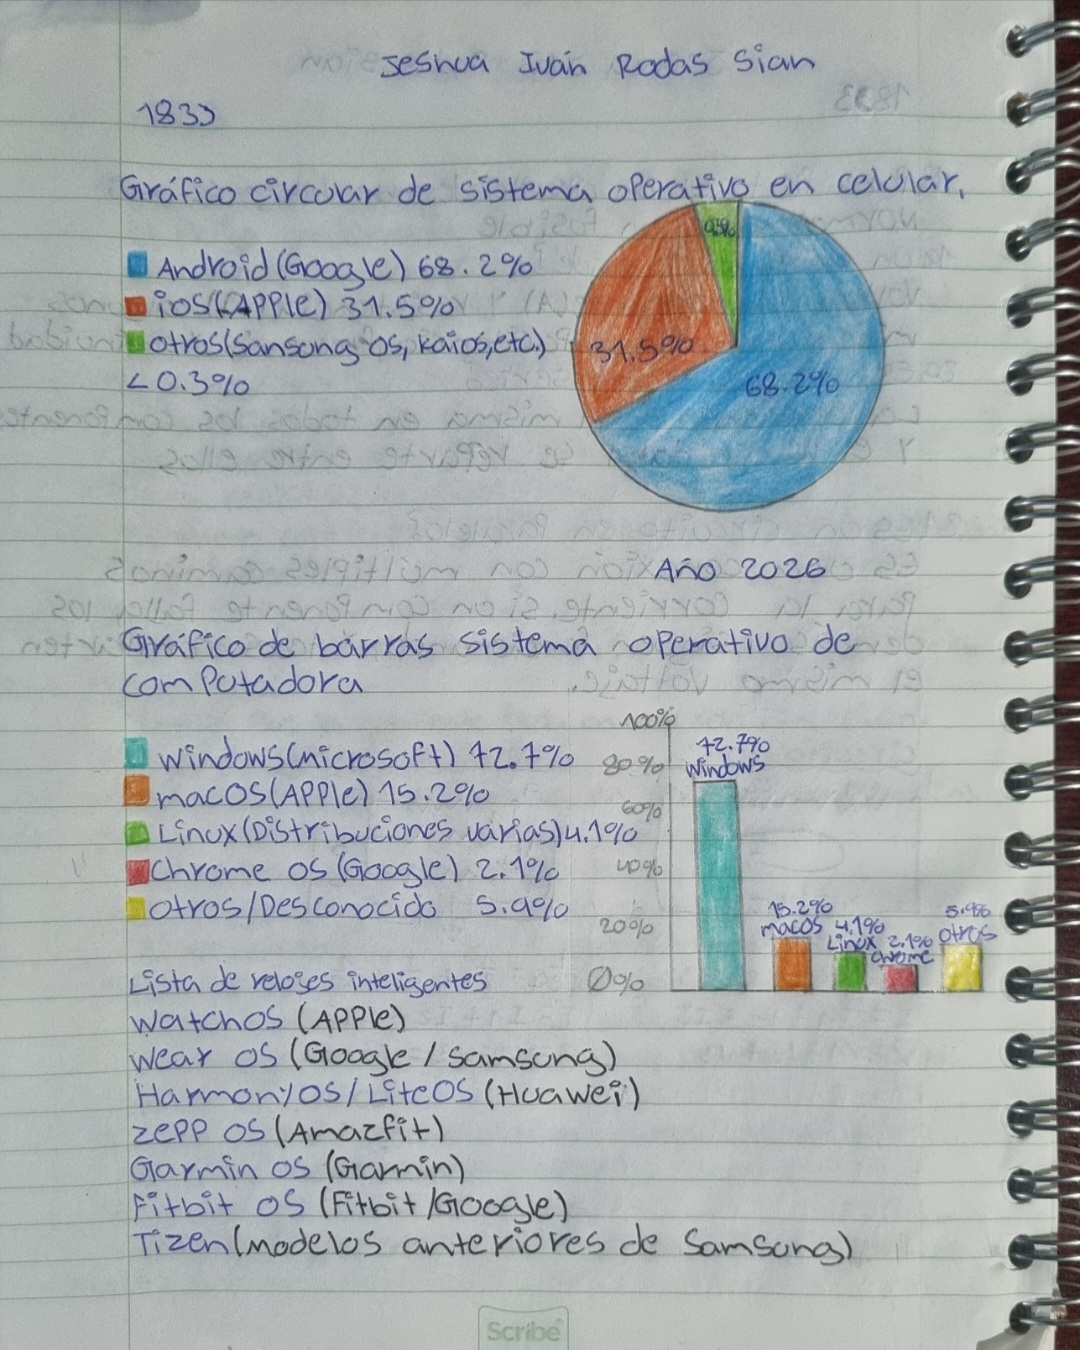 Jeshua Iván Rodas Sian
1833
Gráfico circular de sistema operativo en celular.
Android (Google) 68.2%
iOS (APPle) 31.5%
otros (Sansong os, kaios, etc.)
<0.3%
31.5%
68.2%
Año 2026
Gráfico de barras sistema operativo de
computadora
100%
80%
60%
40%
20%
0%
Windows (microsoft) 72.7%
macOS (APPle) 15.2%
Linux (Distribuciones varias) 4.1%
Chrome OS (Google) 2.1%
otros/Desconocido 5.9%
72.7%
Windows
15.2%
macos
4.1%
Linux
2.1%
chrome
5.9%
otros
Lista de relojes inteligentes
WatchOS (APPle)
Wear OS (Google / Samsung)
HarmonyOS / LiteOS (Huawei)
zepp OS (Amazfit)
Garmin OS (Garmin)
Fitbit OS (Fitbit / Google)
Tizen (modelos anteriores de Samsung)
Scribe